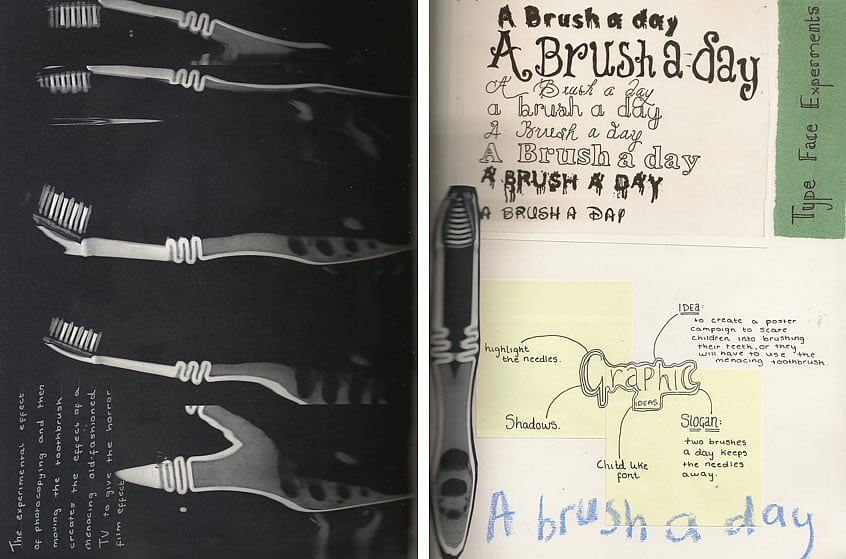 The experimental effect
of photocopying and then
moving the toothbrush
creates the effect of a
menacing old-fashioned
TV to give the horror
film effect.
A Brush a day
A Brush a day
A Brush a day
a brush a day
A Brush a day
A Brush a day
A BRUSH A DAY
A BRUSH A DAY
Type Face Experiments
IDEA:
to create a poster
campaign to scare
children into brushing
their teeth, or they
will have to use the
menacing toothbrush.
highlight
the needles.
Graphic
IDEAS
Shadows.
Slogan:
two brushes
a day keeps
the needles
away.
Child like
font
A brush a day